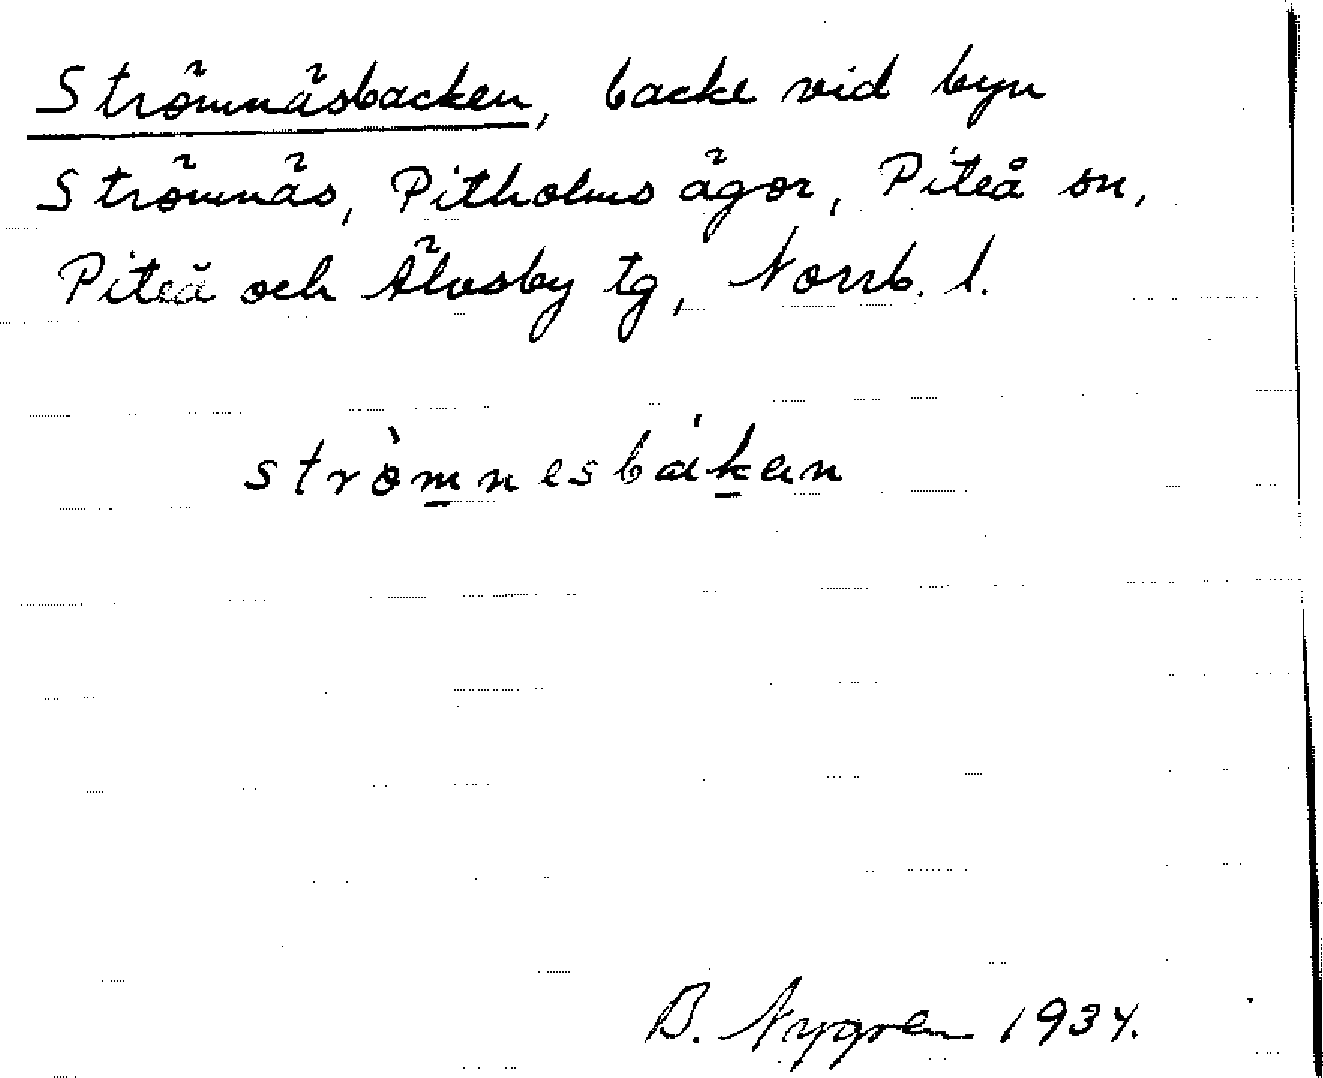 Strömnäsbacken, backe vid byn
Strömnäs, Pitholms ägor, Piteå sn,
Piteå och Älvsby tg, Norrb. l.
stròmnesbákan
B. Nygren 1934.